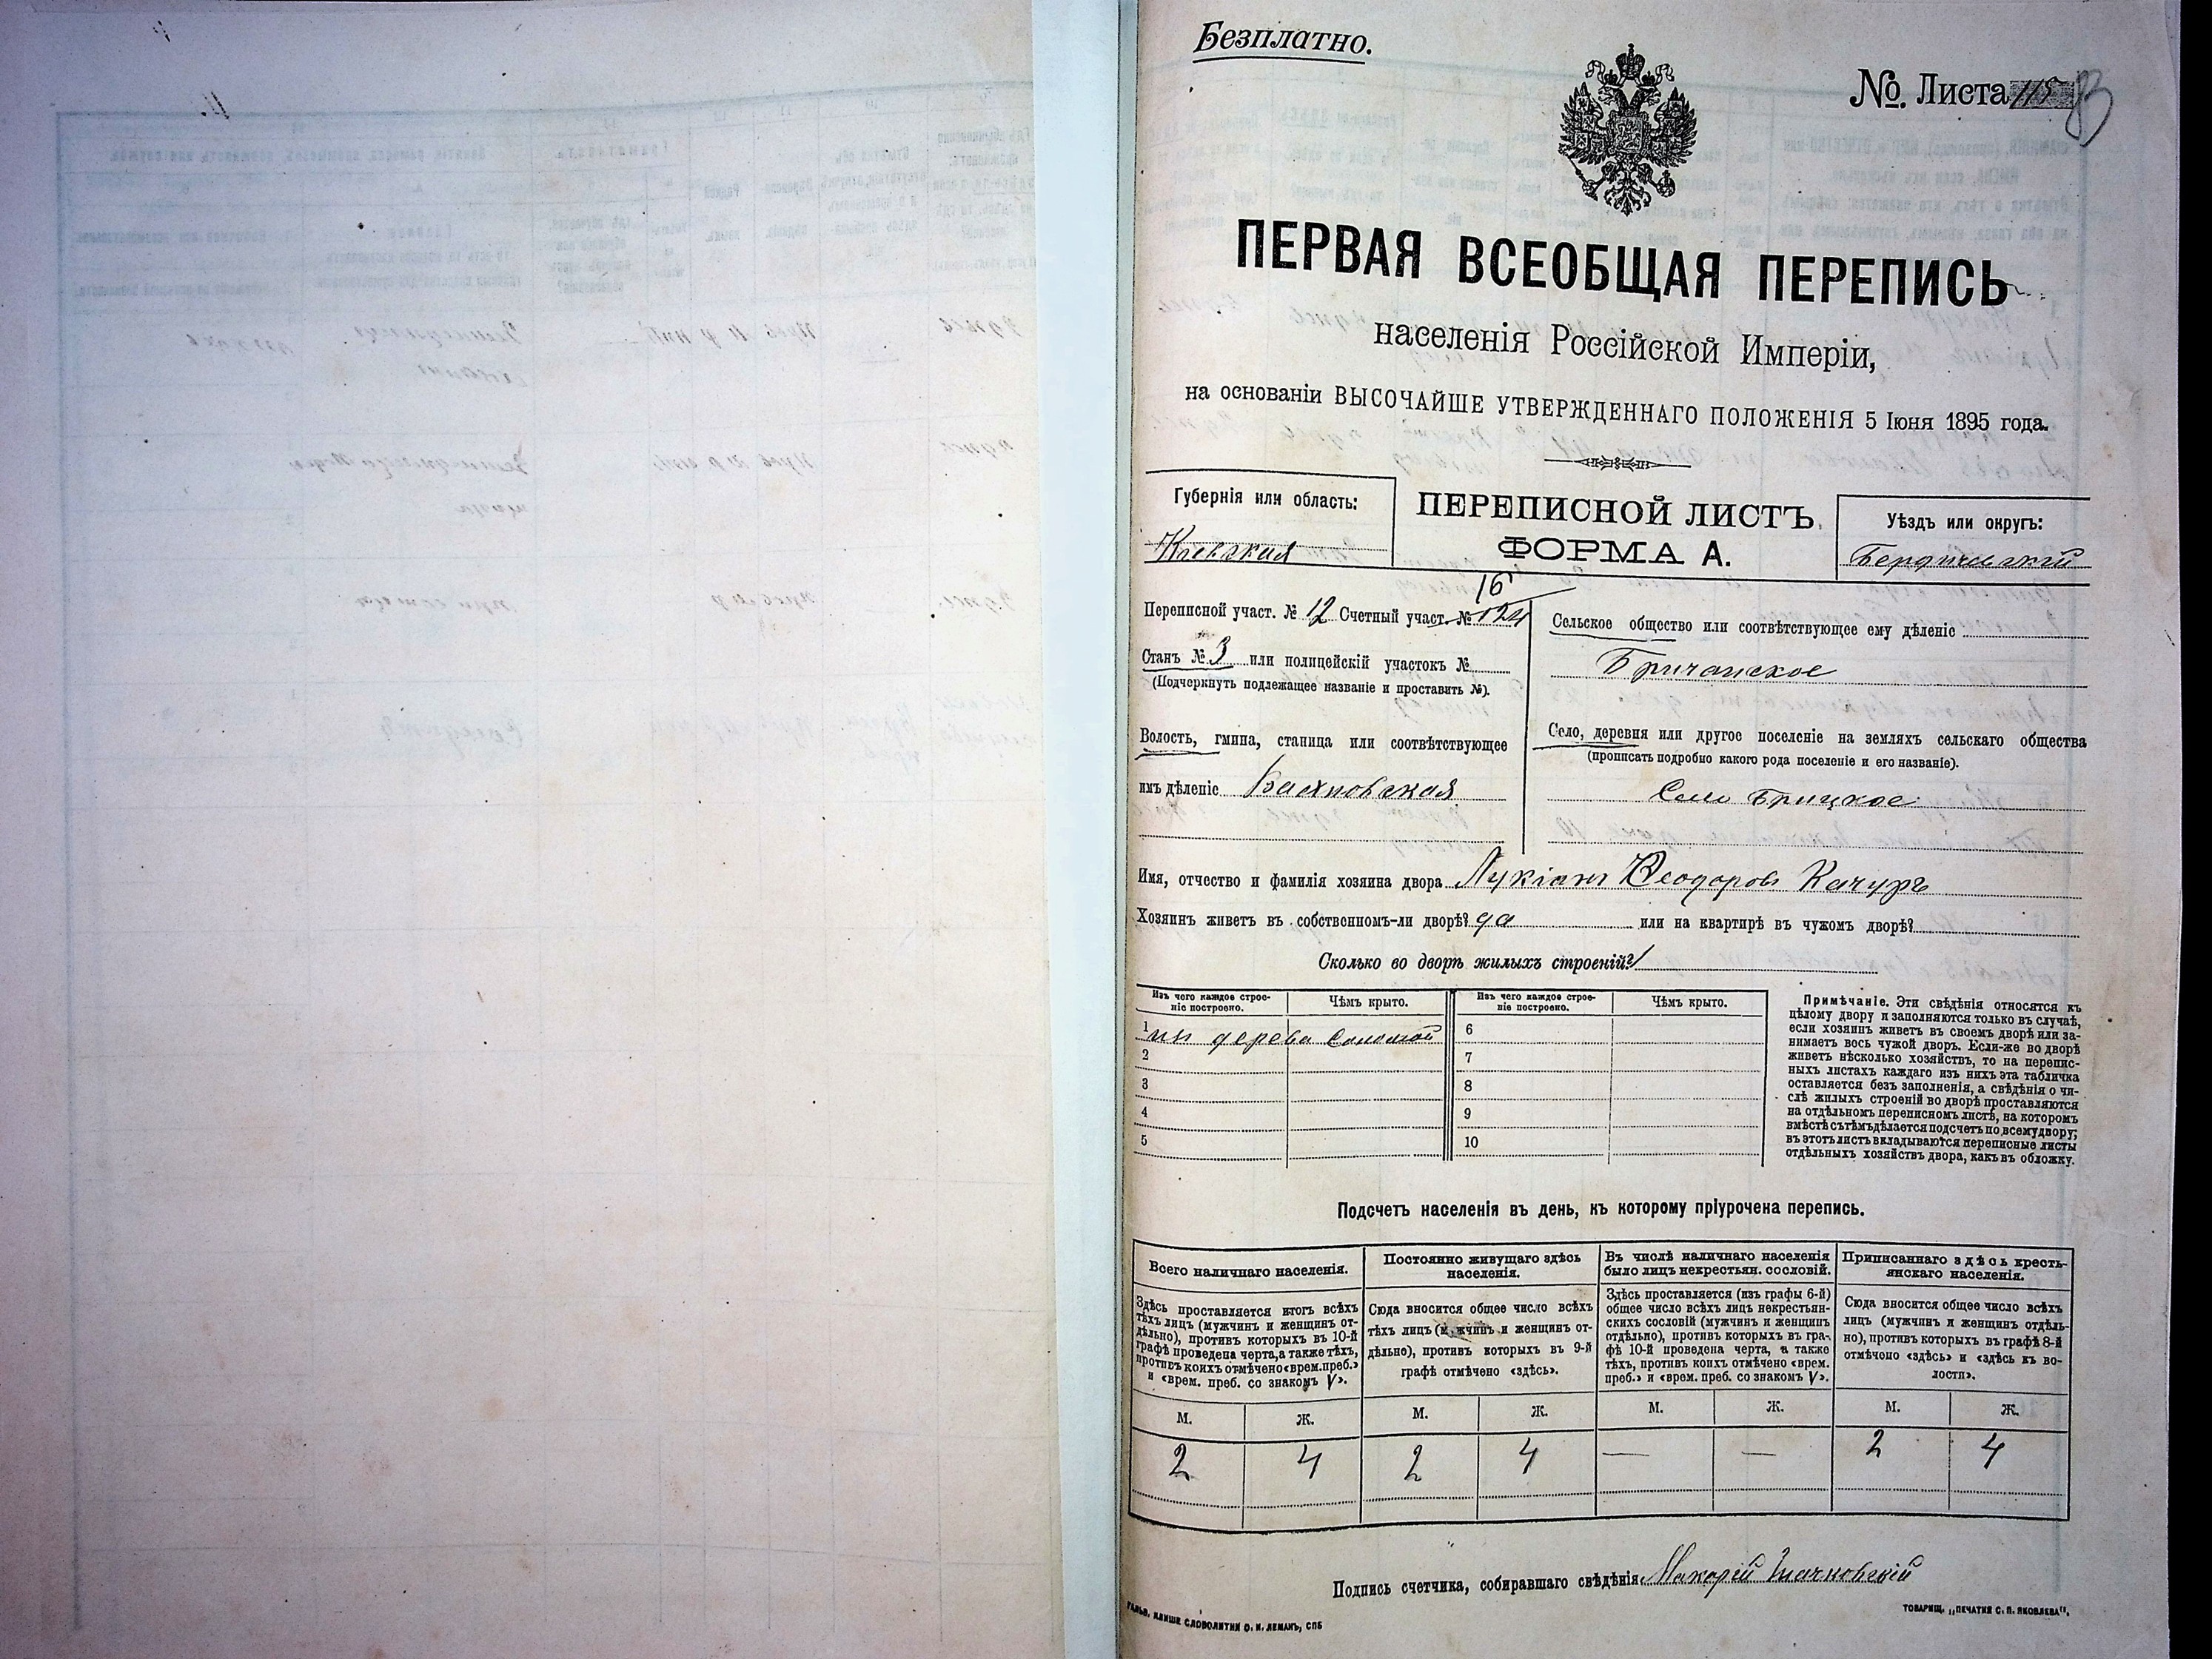 Безплатно.
№ Листа 115 83
ПЕРВАЯ ВСЕОБЩАЯ ПЕРЕПИСЬ
населенія Россійской Имперіи,
на основаніи ВЫСОЧАЙШЕ УТВЕРЖДЕННАГО ПОЛОЖЕНІЯ 5 Іюня 1895 года.
Губернія или область:
Кіевская
ПЕРЕПИСНОЙ ЛИСТЪ
ФОРМА А.
Уѣздъ или округъ:
Бердичевскій
16
Переписной участ. № 12 Счетный участ. № 124
Станъ № 3 или полицейскій участокъ №
(Подчеркнуть подлежащее названіе и проставить №).
Волость, гмина, станица или соотвѣтствующее
имъ дѣленіе
Сельское общество или соотвѣтствующее ему дѣленіе
Бричанское
Село, деревня или другое поселеніе на земляхъ сельскаго общества
(прописать подробно какого рода поселеніе и его названіе).
Село Брицкое
Имя, отчество и фамилія хозяина двора Лукіанъ Ѳеодоровъ Качуръ
Хозяинъ живетъ въ собственномъ-ли дворѣ? да или на квартирѣ въ чужомъ дворѣ?
Сколько во дворѣ жилыхъ строеній? 1
Изъ чего каждое строе-
ніе построено.
Чѣмъ крыто.
Изъ чего каждое строе-
ніе построено.
Чѣмъ крыто.
1 изъ дерева Соломой
2
3
4
5
6
7
8
9
10
Примѣчаніе. Эти свѣдѣнія относятся къ
цѣлому двору и заполняются только въ случаѣ,
если хозяинъ живетъ въ своемъ дворѣ или за-
нимаетъ весь чужой дворъ. Если-же во дворѣ
живетъ нѣсколько хозяйствъ, то на перепис-
ныхъ листахъ каждаго изъ нихъ эта табличка
оставляется безъ заполненія, а свѣдѣнія о чи-
слѣ жилыхъ строеній во дворѣ проставляются
на отдѣльномъ переписномъ листѣ, на которомъ
вмѣстѣ съ тѣмъ дѣлается подсчетъ по всему двору;
въ этотъ листъ вкладываются переписные листы
отдѣльныхъ хозяйствъ двора, какъ въ обложку.
Подсчетъ населенія въ день, къ которому пріурочена перепись.
Всего наличнаго населенія.
Здѣсь проставляется итогъ всѣхъ
тѣхъ лицъ (мужчинъ и женщинъ от-
дѣльно), противъ которыхъ въ 10-й
графѣ проведена черта, а также тѣхъ,
противъ коихъ отмѣчено «врем. преб.»
и «врем. преб. со знакомъ V».
Постоянно живущаго здѣсь
населенія.
Сюда вносится общее число всѣхъ
тѣхъ лицъ (мужчинъ и женщинъ от-
дѣльно), противъ которыхъ въ 9-й
графѣ отмѣчено «здѣсь».
Въ числѣ наличнаго населенія
было лицъ некрестьян. сословій.
Здѣсь проставляется (изъ графы 6-й)
общее число всѣхъ лицъ некрестьян-
скихъ сословій (мужчинъ и женщинъ
отдѣльно), противъ которыхъ въ гра-
фѣ 10-й проведена черта, а также
тѣхъ, противъ коихъ отмѣчено «врем.
преб.» и «врем. преб. со знакомъ V».
Приписаннаго здѣсь кресть-
янскаго населенія.
Сюда вносится общее число всѣхъ
лицъ (мужчинъ и женщинъ отдѣль-
но), противъ которыхъ въ графѣ 8-й
отмѣчено «здѣсь» и «здѣсь въ во-
лости».
М. Ж. М. Ж. М. Ж. М. Ж.
2 4 2 4 — — 2 4
Подпись счетчика, собиравшаго свѣдѣнія Макарій
ГАЛЬВ. КЛИШЕ СЛОВОЛИТНИ О. И. ЛЕМАНЪ, СПБ
ТОВАРИЩ. „ПЕЧАТНЯ С. П. ЯКОВЛЕВА“.